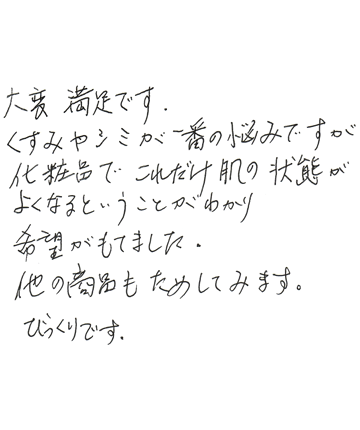 大変 満足です.
くすみやシミが一番の悩みですが
化粧品で これだけ肌の状態が
よくなるということがわかり
希望がもてました.
他の商品もためしてみます。
びっくりです.